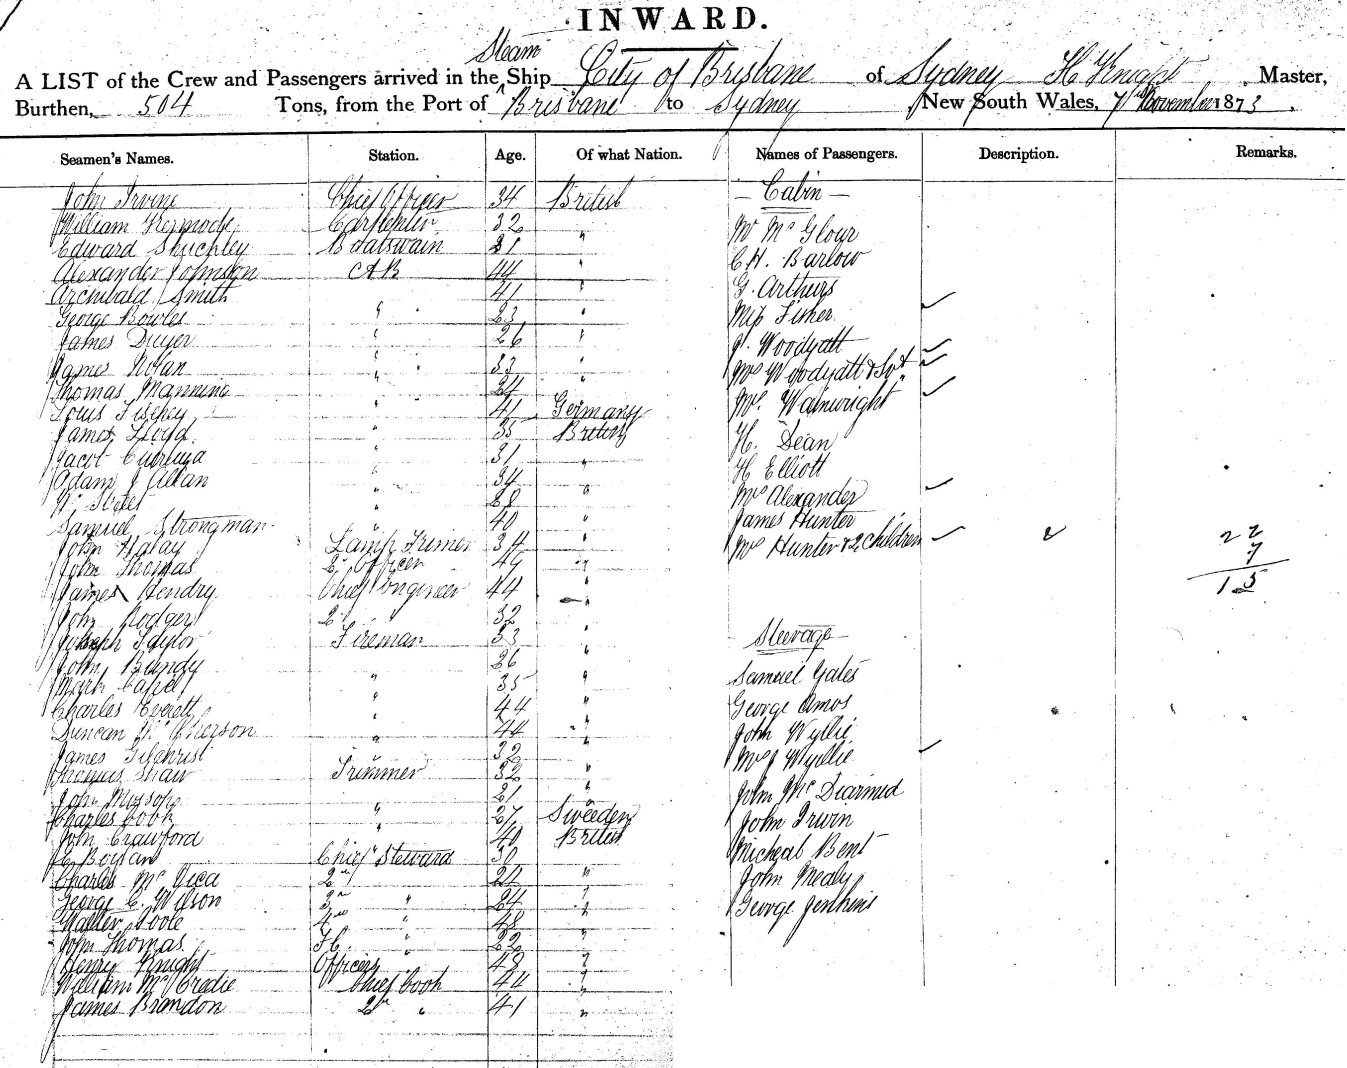 INWARD.
Steam
A LIST of the Crew and Passengers arrived in the Ship City of Brisbane of Sydney H Knight Master,
Burthen, 504 Tons, from the Port of Brisbane to Sydney, New South Wales, 7th November 1873.
Seamen's Names. Station. Age. Of what Nation. Names of Passengers. Description. Remarks.
John Irvine Chief Officer 34 British
William Kermode Carpenter 32 "
Edward Boatswain "
Alexander Johnson AB 44 "
Archibald Smith 41 "
George Bowles " 23 "
James Dwyer " 26 "
James Nolan " 33 "
Thomas Manning " 24 "
Louis Fischey " 41 Germany
James Lloyd " 35 British
Jacob " 31 "
Adam J Allan " 34 "
Wm Street " 28 "
Samuel Strongman " 40 "
John Lamp Trimer 34 "
John Thomas 2 Officer "
James Hendry Chief Engineer 44 "
John Rodger 2 " 32 "
Joseph Taylor Fireman 33 "
John Bundy 26 "
Mark " 35 "
Charles Everett " 44 "
Duncan McPherson " 44 "
James Gilchrist " 32 "
Thomas Shaw Trimmer 32 "
John Mossop 21 "
Charles Cook " 27 Sweeden
John Crawford " 40 British
Boylan Chief Steward 30
Charles Mc 2nd 24 "
George C. Wilson 3rd " 24 "
Walter Poole 4th " 48 "
John Thomas " 22 "
Henry Knight Officers " 48 "
William McCredie Chief Cook 44 "
James Brandon 2nd " 41 "
— Cabin —
Mr Mc Glour
C H. Barlow
G. Arthurs
Miss Fisher
J. Woodyatt
Mrs Woodyatt & Svt
Mrs. Wainwright
H. Dean
H Elliott
Mrs Alexander
James Hunter
Mrs Hunter & 2 children 2 22
7
15
Steerage
Samuel Yates
George Amos
John Wyllie
Mrs Wyllie
John McDiarmid
John Irwin
Micheal Bent
John Mealy
George Jenkins